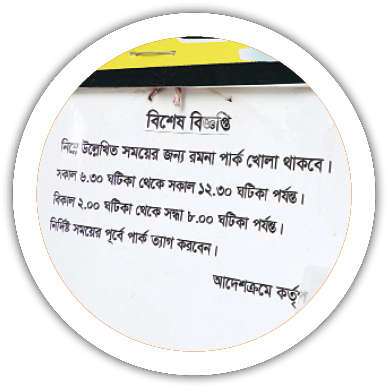 বিশেষ বিজ্ঞপ্তি
নিম্নে উল্লেখিত সময়ের জন্য রমনা পার্ক খোলা থাকবে।
সকাল ৬.৩০ ঘটিকা থেকে সকাল ১২.৩০ ঘটিকা পর্যন্ত।
বিকাল ২.০০ ঘটিকা থেকে সন্ধা ৮.০০ ঘটিকা পর্যন্ত।
নির্দিষ্ট সময়ের পূর্বে পার্ক ত্যাগ করবেন।
আদেশক্রমে